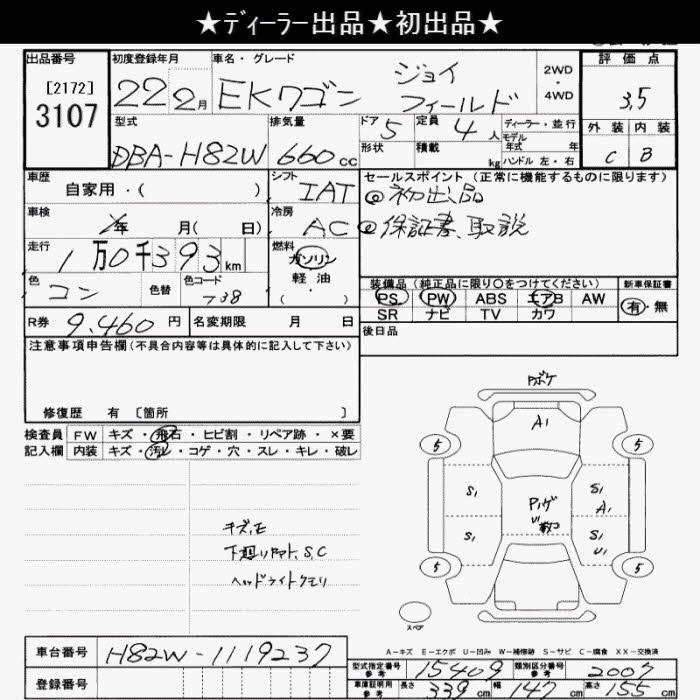 ★ディーラー出品★初出品★
出品番号
[2172]
3107
初度登録年月
22 2月
車名・グレード
EKワゴン
ジョイ
フィールド
2WD
・
4WD
評価点
3.5
外装 内装
C B
型式
DBA-H82W
排気量
660cc
ドア 5
形状
定員 4人
積載 kg
ディーラー・並行
モデル
年式 年
ハンドル 左・右
車歴
自家用・( )
シフト
IAT
セールスポイント (正常に機能するものに限ります)
◎初出品
◎保証書、取説
車検
年 月( 日)
冷房
AC
走行
1万0千393km
燃料
ガソリン
軽油
( ・ )
色
コン
色替
色コード
装備品 (純正品に限り○をつけてください)
PS PW ABS エアB AW
SR ナビ TV カワ
新車保証書
有・無
R券 9.460円
名変期限 月 日
後日品
注意事項申告欄(不具合内容等は具体的に記入して下さい)
修復歴 有 [箇所 ]
検査員 FW キズ・飛石・ヒビ割・リペア跡・×要
記入欄 内装 キズ・汚レ・コゲ・穴・スレ・キレ・破レ
A1
5 5
S1 S1
A1
S1 S1
U1
5 5
スペア
ヘッドライトクモリ
A-キズ E-エクボ U-凹み W-補修跡 S-サビ C-腐食 XX-交換済
車台番号 H82W-1119237
登録番号
型式指定番号 参考 15409
類別区分番号 参考 2007
車庫証明用 参考 長さ 339cm 幅 147cm 高さ 155cm